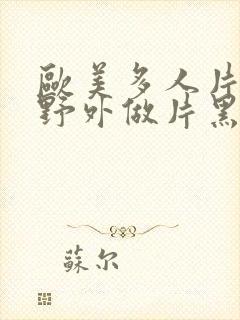 歐美多人片
野外做片黑
蘇尔